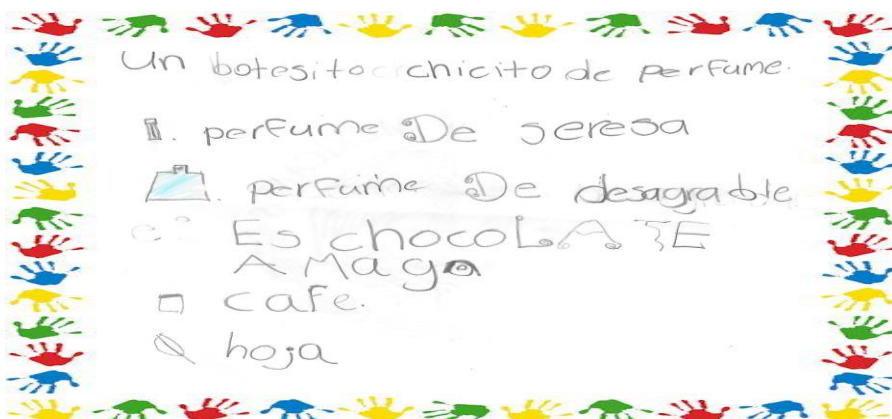 Un botesito chicito de perfume.
perfume De seresa
perfume De desagrable
Es chocoLATE
AMago
cafe.
hoja